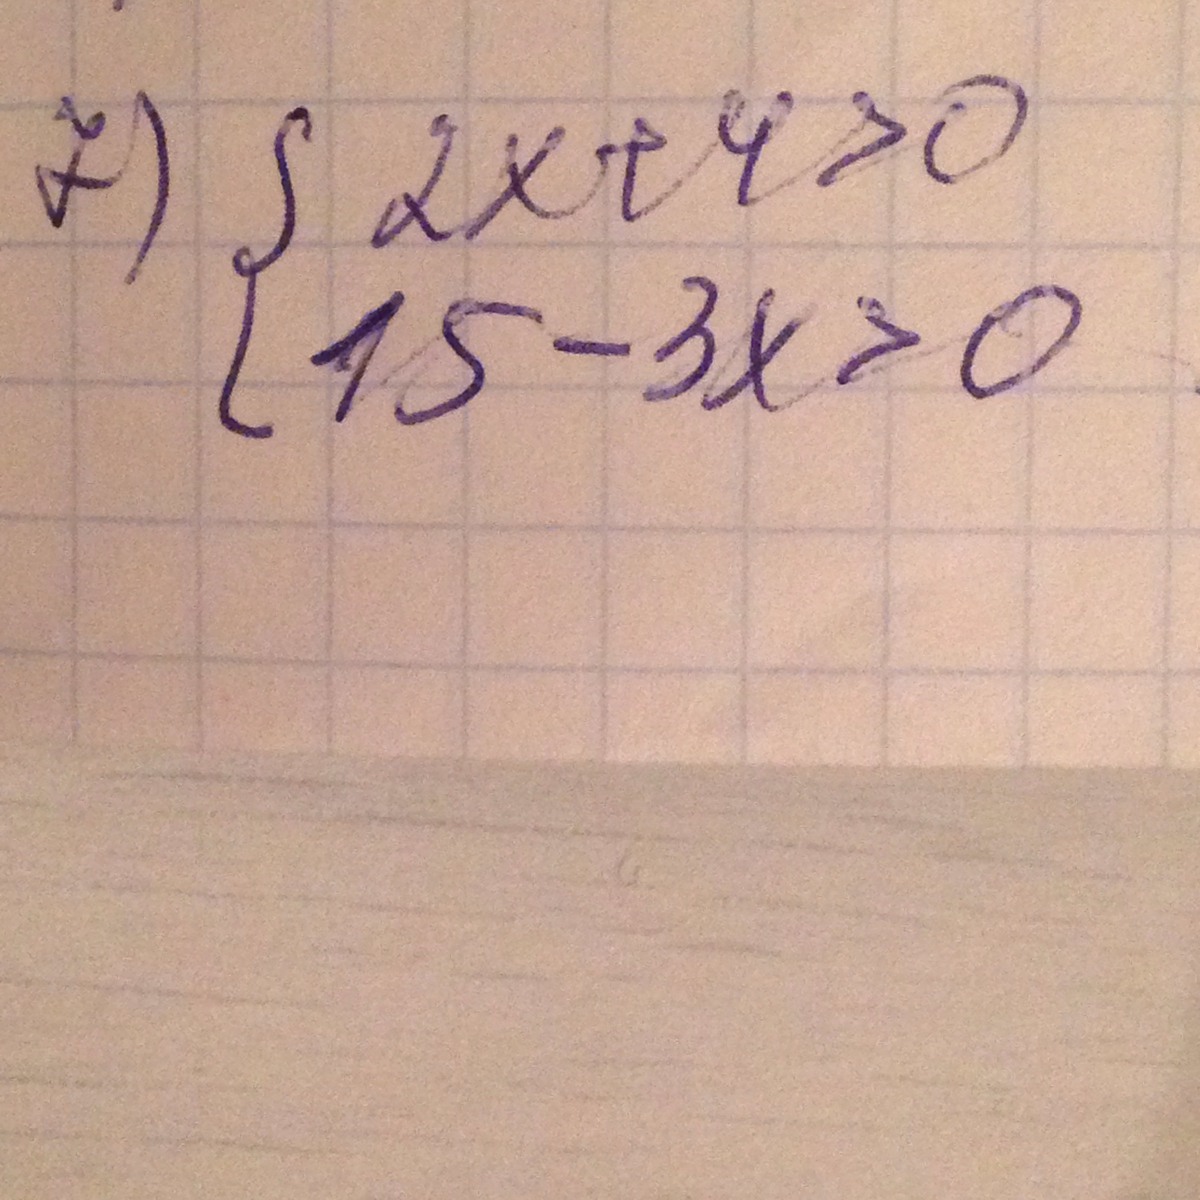 7) { 2x+4>0
15-3x>0